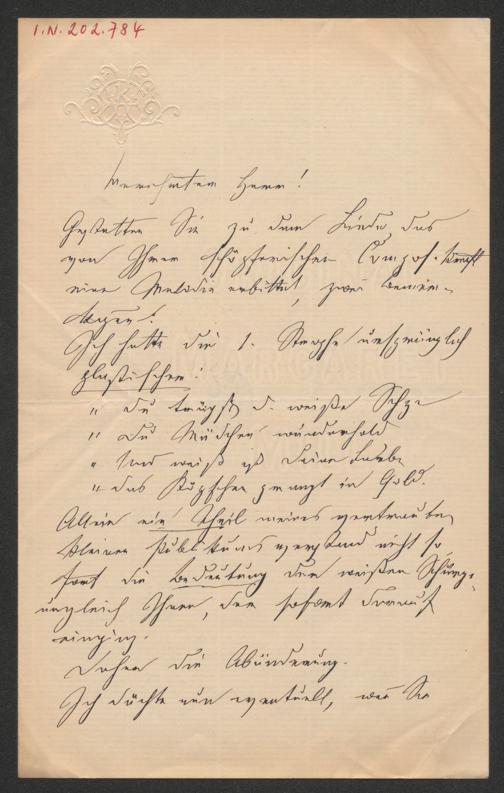 I.N. 202.784
Verehrtester Herr!
Gestatten Sie zu dem Liede, das
von Ihrer schöpferischen Compos. Kraft
eine Melodie erbittet, zwei Bemer-
kungen!
Ich hatte die 1. Strophe ursprünglich
plastischer!
„ Du trägst d. weiße Schürze
„ Du Mädchen wunderhold
„ Und weiß ist Deine
„ das Köpfchen prangt in Gold.
Allein ein Theil meines vertrauten
kleinen Publikums verstand nicht so-
fort die Bedeutung der weißen Schürze,
ungleich Ihnen, der sofort darauf
einging.
Daher die Abänderung.
Ich dächte nun eventuell, wenn Sie